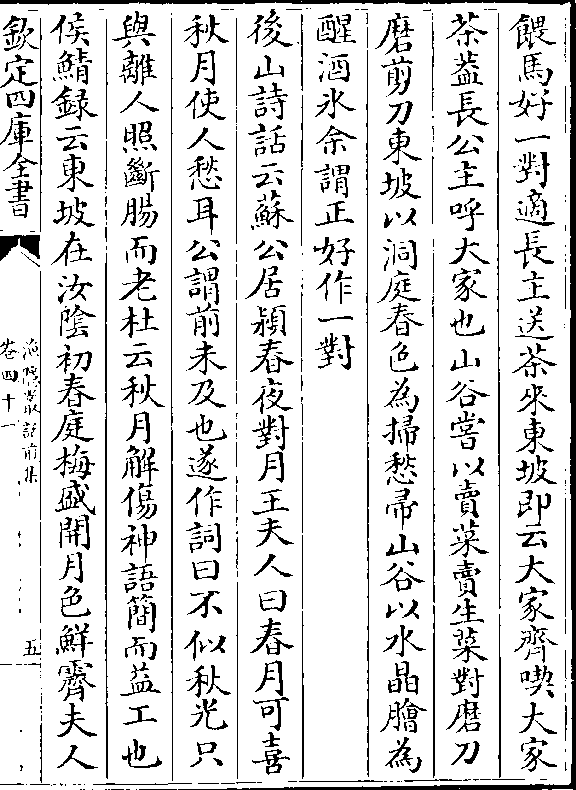 餵馬好一對適長主送茶來東坡即云大家齊喫大家
茶蓋長公主呼大家也山谷嘗以賣菜賣生菜對磨刀
磨剪刀東坡以洞庭春色為掃愁帚山谷以水晶膾為
醒酒氷余謂正好作一對
後山詩話云蘇公居潁春夜對月王夫人曰春月可喜
秋月使人愁耳公謂前未及也遂作詞曰不似秋光只
與離人照斷腸而老杜云秋月解傷神語簡而益工也
侯鯖録云東坡在汝陰初春庭梅盛開月色鮮霽夫人
欽定四庫全書
漁隱叢話前集
卷四十一
五